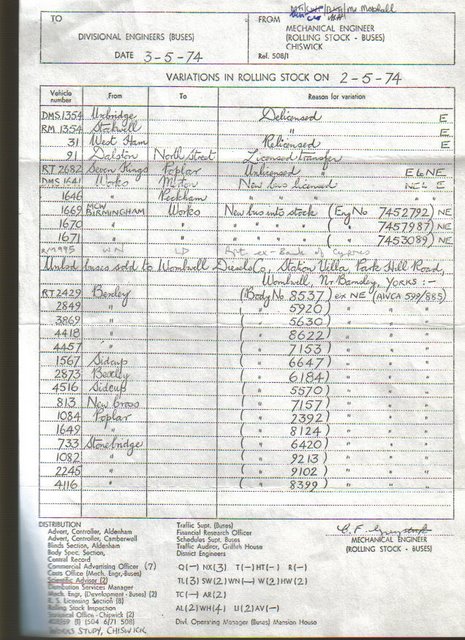 TO
DIVISIONAL ENGINEERS (BUSES)
DATE 3-5-74
FROM
MECHANICAL ENGINEER
(ROLLING STOCK - BUSES)
CHISWICK
Ref. 508/1
VARIATIONS IN ROLLING STOCK ON 2-5-74
Vehicle number From To Reason for variation
DMS1354 Uxbridge Delicensed E
RM 1354 Stockwell " E
31 West Ham Relicensed E
91 Dalston North Street Licensed transfer
RT 2682 Seven Kings Poplar Unlicensed " E & NE
DMS 1641 Works Merton New bus licensed NE & E
1646 " Peckham " " "
1669 MCW BIRMINGHAM Works New bus into stock (Eng No 7452792) NE
1670 " " " " " " ( " 7457987) NE
1671 " " " " " " ( " 7453089) NE
RM995 WN
Unlsd buses sold to Wombwell Diesels Co, Station Villa, Park Hill Road,
Wombwell, Nr. Barnsley, YORKS :-
RT2429 Bexley (Body No 8537) ex NE (AWCA 599/885)
2849 " ( " 5920) " " "
3869 " ( " 5630) " " "
4418 " ( " 8622) " " "
4457 " ( " 7153) " " "
1567 Sidcup ( " 6647) " " "
2873 Bexley ( " 6184) " " "
4516 Sidcup ( " 5570) " " "
813 New Cross ( " 7157) " " "
1084 Poplar ( " 2392) " " "
1649 " ( " 8124) " " "
733 Stonebridge ( " 6420) " " "
1082 " ( " 9213) " " "
2245 " ( " 9102) " " "
4116 " ( " 8399) " " "
DISTRIBUTION
Advert. Controller, Aldenham
Advert. Controller, Camberwell
Blinds Section, Aldenham
Body Spec. Section,
Central Record
Commercial Advertising Officer (7)
Costs Office (Mech. Engr, Buses)
Scientific Adviser (2)
Distribution Services Manager
Mech. Engr, (Development - Buses) (2)
R. S. Licensing Section (8)
Rolling Stock Inspection
Technical Office - Chiswick (2)
408/59 (1) (504 6/71 508)
WORKS STUDY, CHISWICK.
Traffic Supt. (Buses)
Financial Research Officer
Schedules Supt. Buses
Traffic Auditor, Griffith House
District Engineers
Q(-) NX(3) T(-) HT(-) R(-)
TL(3) SW(2) WN(-) W(2) HW(2)
TC(-) AR(2)
AL(2) WH(4) LI(2) AV(-)
Divl. Operating Manager (Buses) Mansion House
MECHANICAL ENGINEER
(ROLLING STOCK - BUSES)